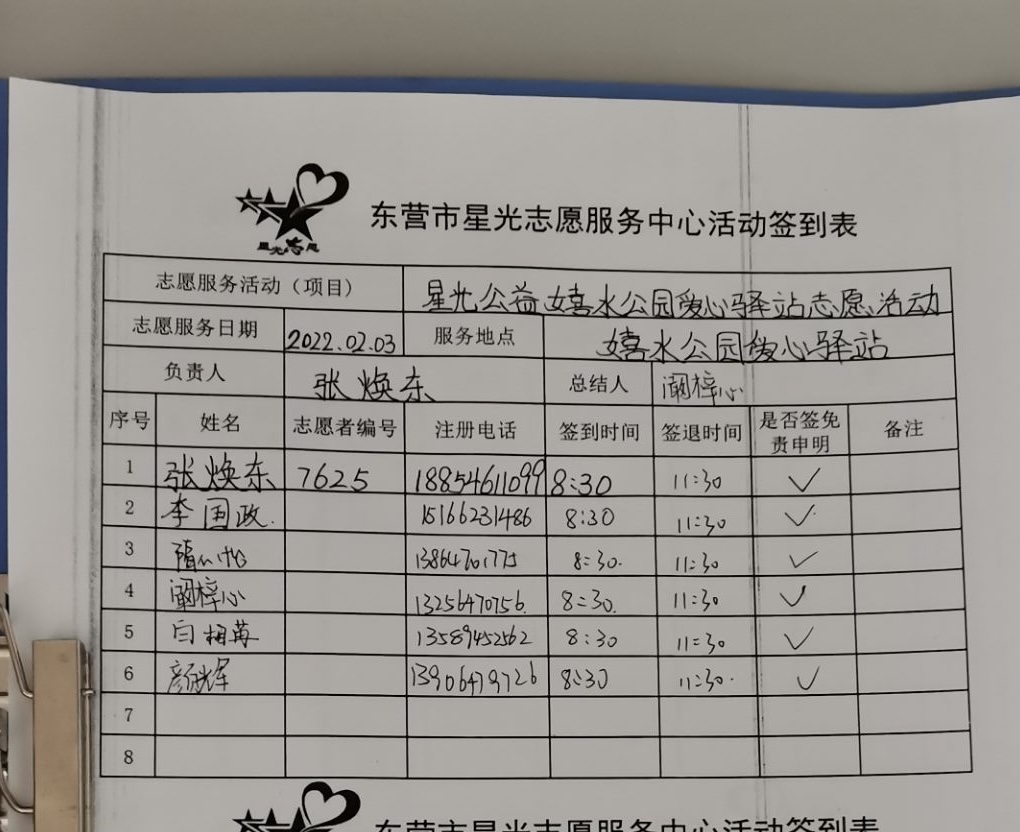 星光志愿
东营市星光志愿服务中心活动签到表
志愿服务活动（项目） 星光公益嬉水公园爱心驿站志愿活动
志愿服务日期 2022.02.03 服务地点 嬉水公园爱心驿站
负责人 张焕东 总结人 阚梓心
序号 姓名 志愿者编号 注册电话 签到时间 签退时间 是否签免责申明 备注
1 张焕东 7625 18854611099 8:30 11:30 ✓
2 李国政. 15166231486 8:30 11:30 ✓
3 13864701775 8:30. 11:30 ✓
4 阚梓心 13256470756. 8:30. 11:30 ✓
5 白相苒 13589452562 8:30 11:30 ✓
6 颜辉军 13906479726 8:30 11:30. ✓
7
8
东营市星光志愿服务中心活动签到表